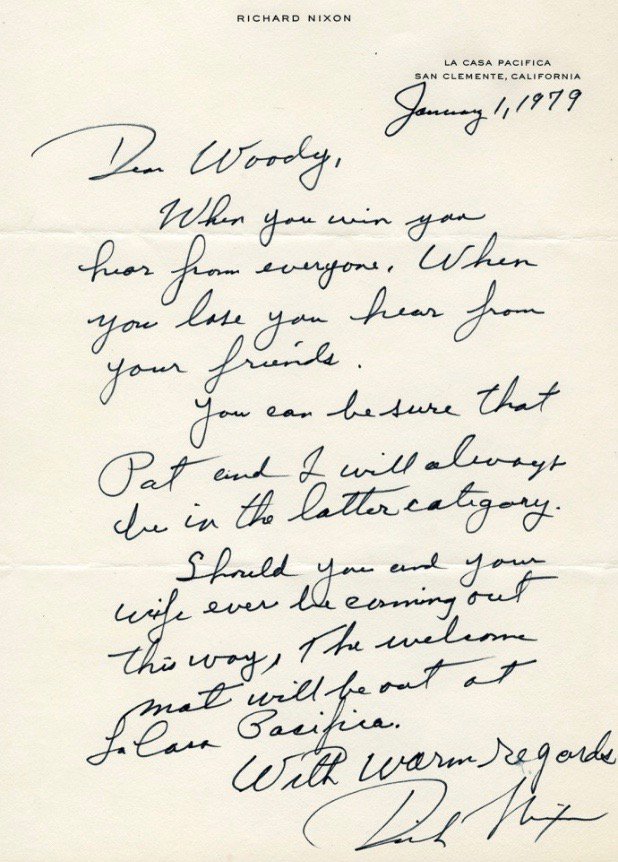 RICHARD NIXON
LA CASA PACIFICA
SAN CLEMENTE, CALIFORNIA
January 1, 1979
Dear Woody,
When you win you
hear from everyone. When
you lose you hear from
your friends.
You can be sure that
Pat and I will always
be in the latter category.
Should you and your
wife ever be coming out
this way, the welcome
mat will be out at
La Casa Pacifica.
With warm regards
Dick Nixon